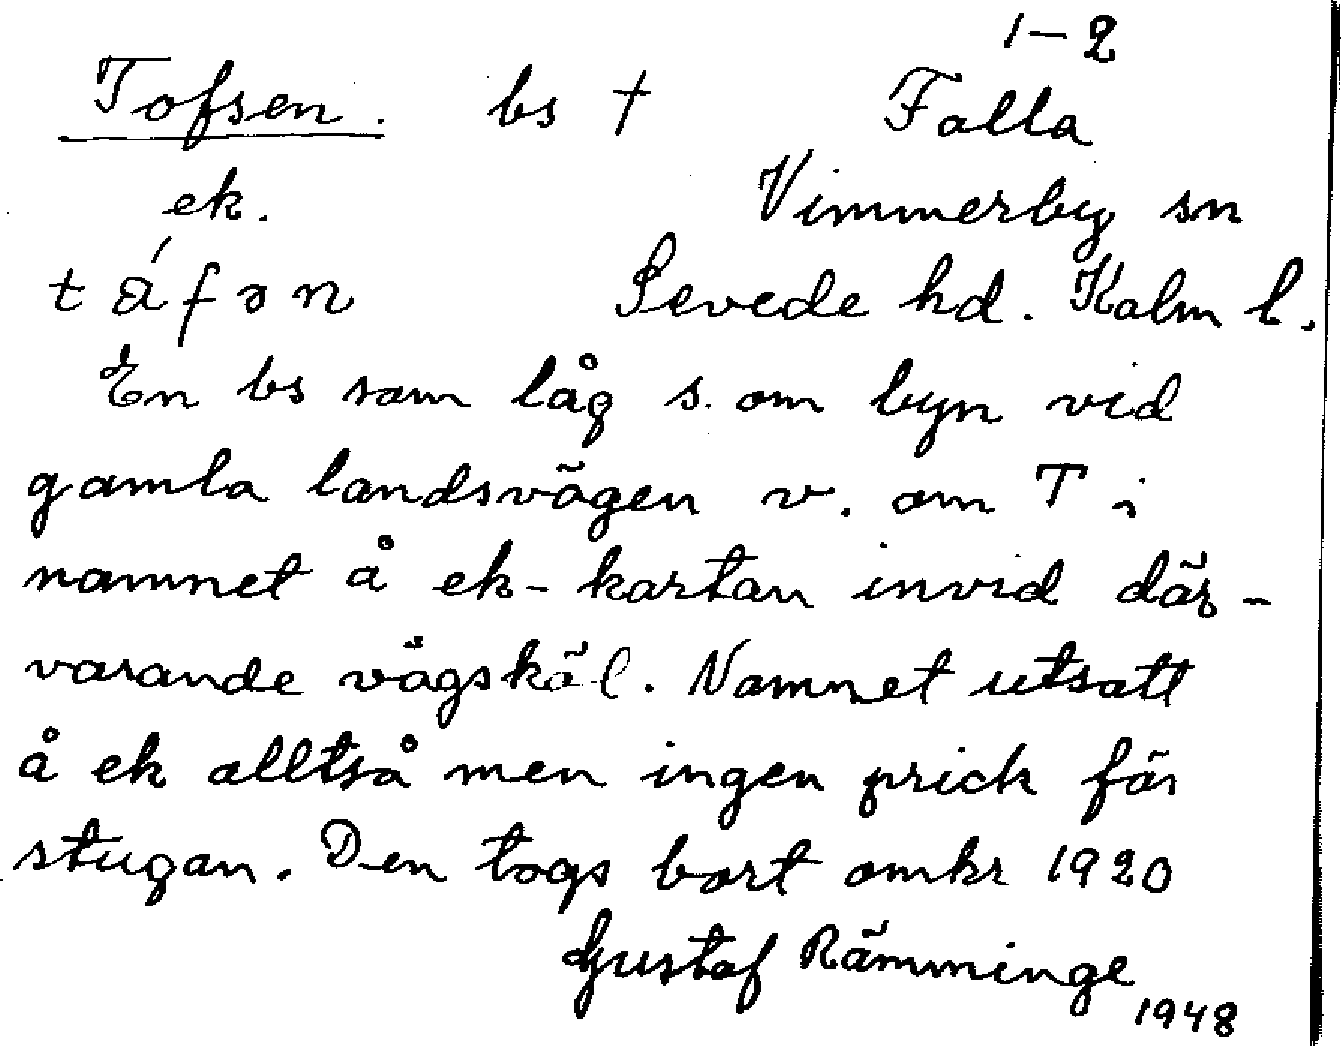 1-2
Tofsen. bs † Falla
ek. Vimmerby sn
táfən Sevede hd. Kalm l.
En bs som låg s. om byn vid
gamla landsvägen v. om T i
namnet å ek-kartan invid där-
varande vägskäl. Namnet utsatt
å ek alltså men ingen prick för
stugan. Den togs bort omkr 1920
Gustaf Rämminge
1948